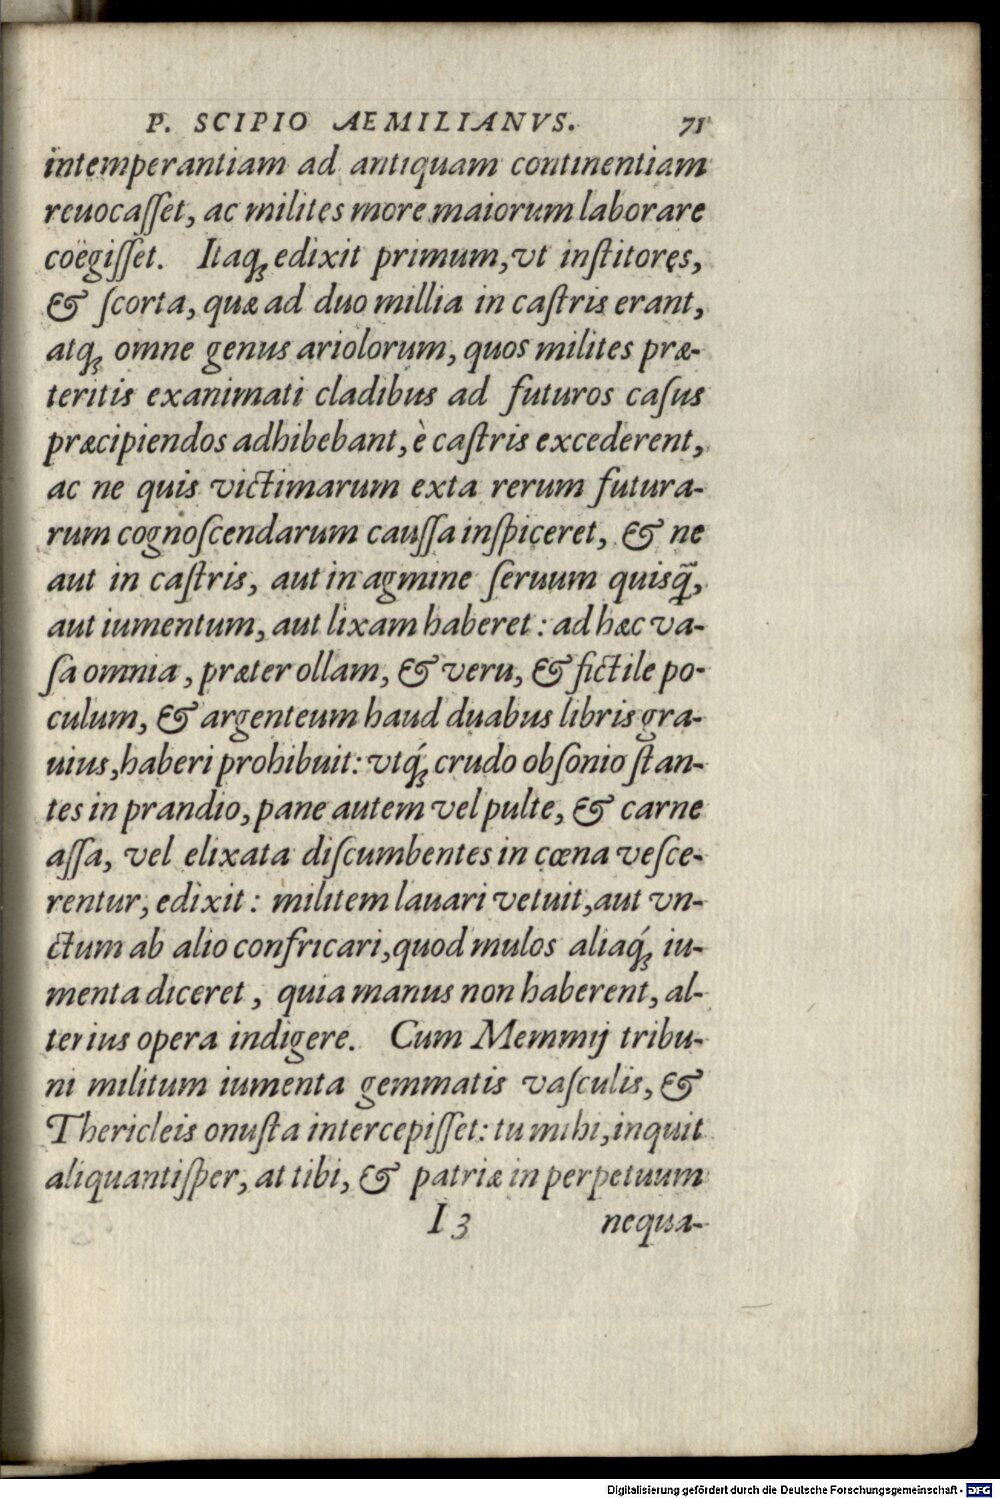 P. SCIPIO AEMILIANVS. 71
intemperantiam ad antiquam continentiam
reuocaſſet, ac milites more maiorum laborare
coëgiſſet. Itaq́ꝫ edixit primum, vt inſtitores,
& ſcorta, quæ ad duo millia in caſtris erant,
atqꝫ omne genus ariolorum, quos milites præ-
teritis exanimati cladibus ad futuros caſus
præcipiendos adhibebant, è caſtris excederent,
ac ne quis victimarum exta rerum futura-
rum cognoſcendarum cauſſa inſpiceret, & ne
aut in caſtris, aut in agmine ſeruum quisq̃,
aut iumentum, aut lixam haberet: ad hæc va-
ſa omnia, præter ollam, & veru, & fictile po-
culum, & argenteum haud duabus libris gra-
uius, haberi prohibuit: vtq́ꝫ crudo obſonio ſtan-
tes in prandio, pane autem vel pulte, & carne
aſſa, vel elixata diſcumbentes in cœna veſce-
rentur, edixit: militem lauari vetuit, aut vn-
ctum ab alio confricari, quod mulos aliaq́ꝫ iu-
menta diceret, quia manus non haberent, al-
terius opera indigere. Cum Memmij tribu-
ni militum iumenta gemmatis vaſculis, &
Thericleis onuſta intercepiſſet: tu mihi, inquit
aliquantiſper, at tibi, & patriæ in perpetuum
I 3 nequa-
Digitalisierung gefördert durch die Deutsche Forschungsgemeinschaft - DFG